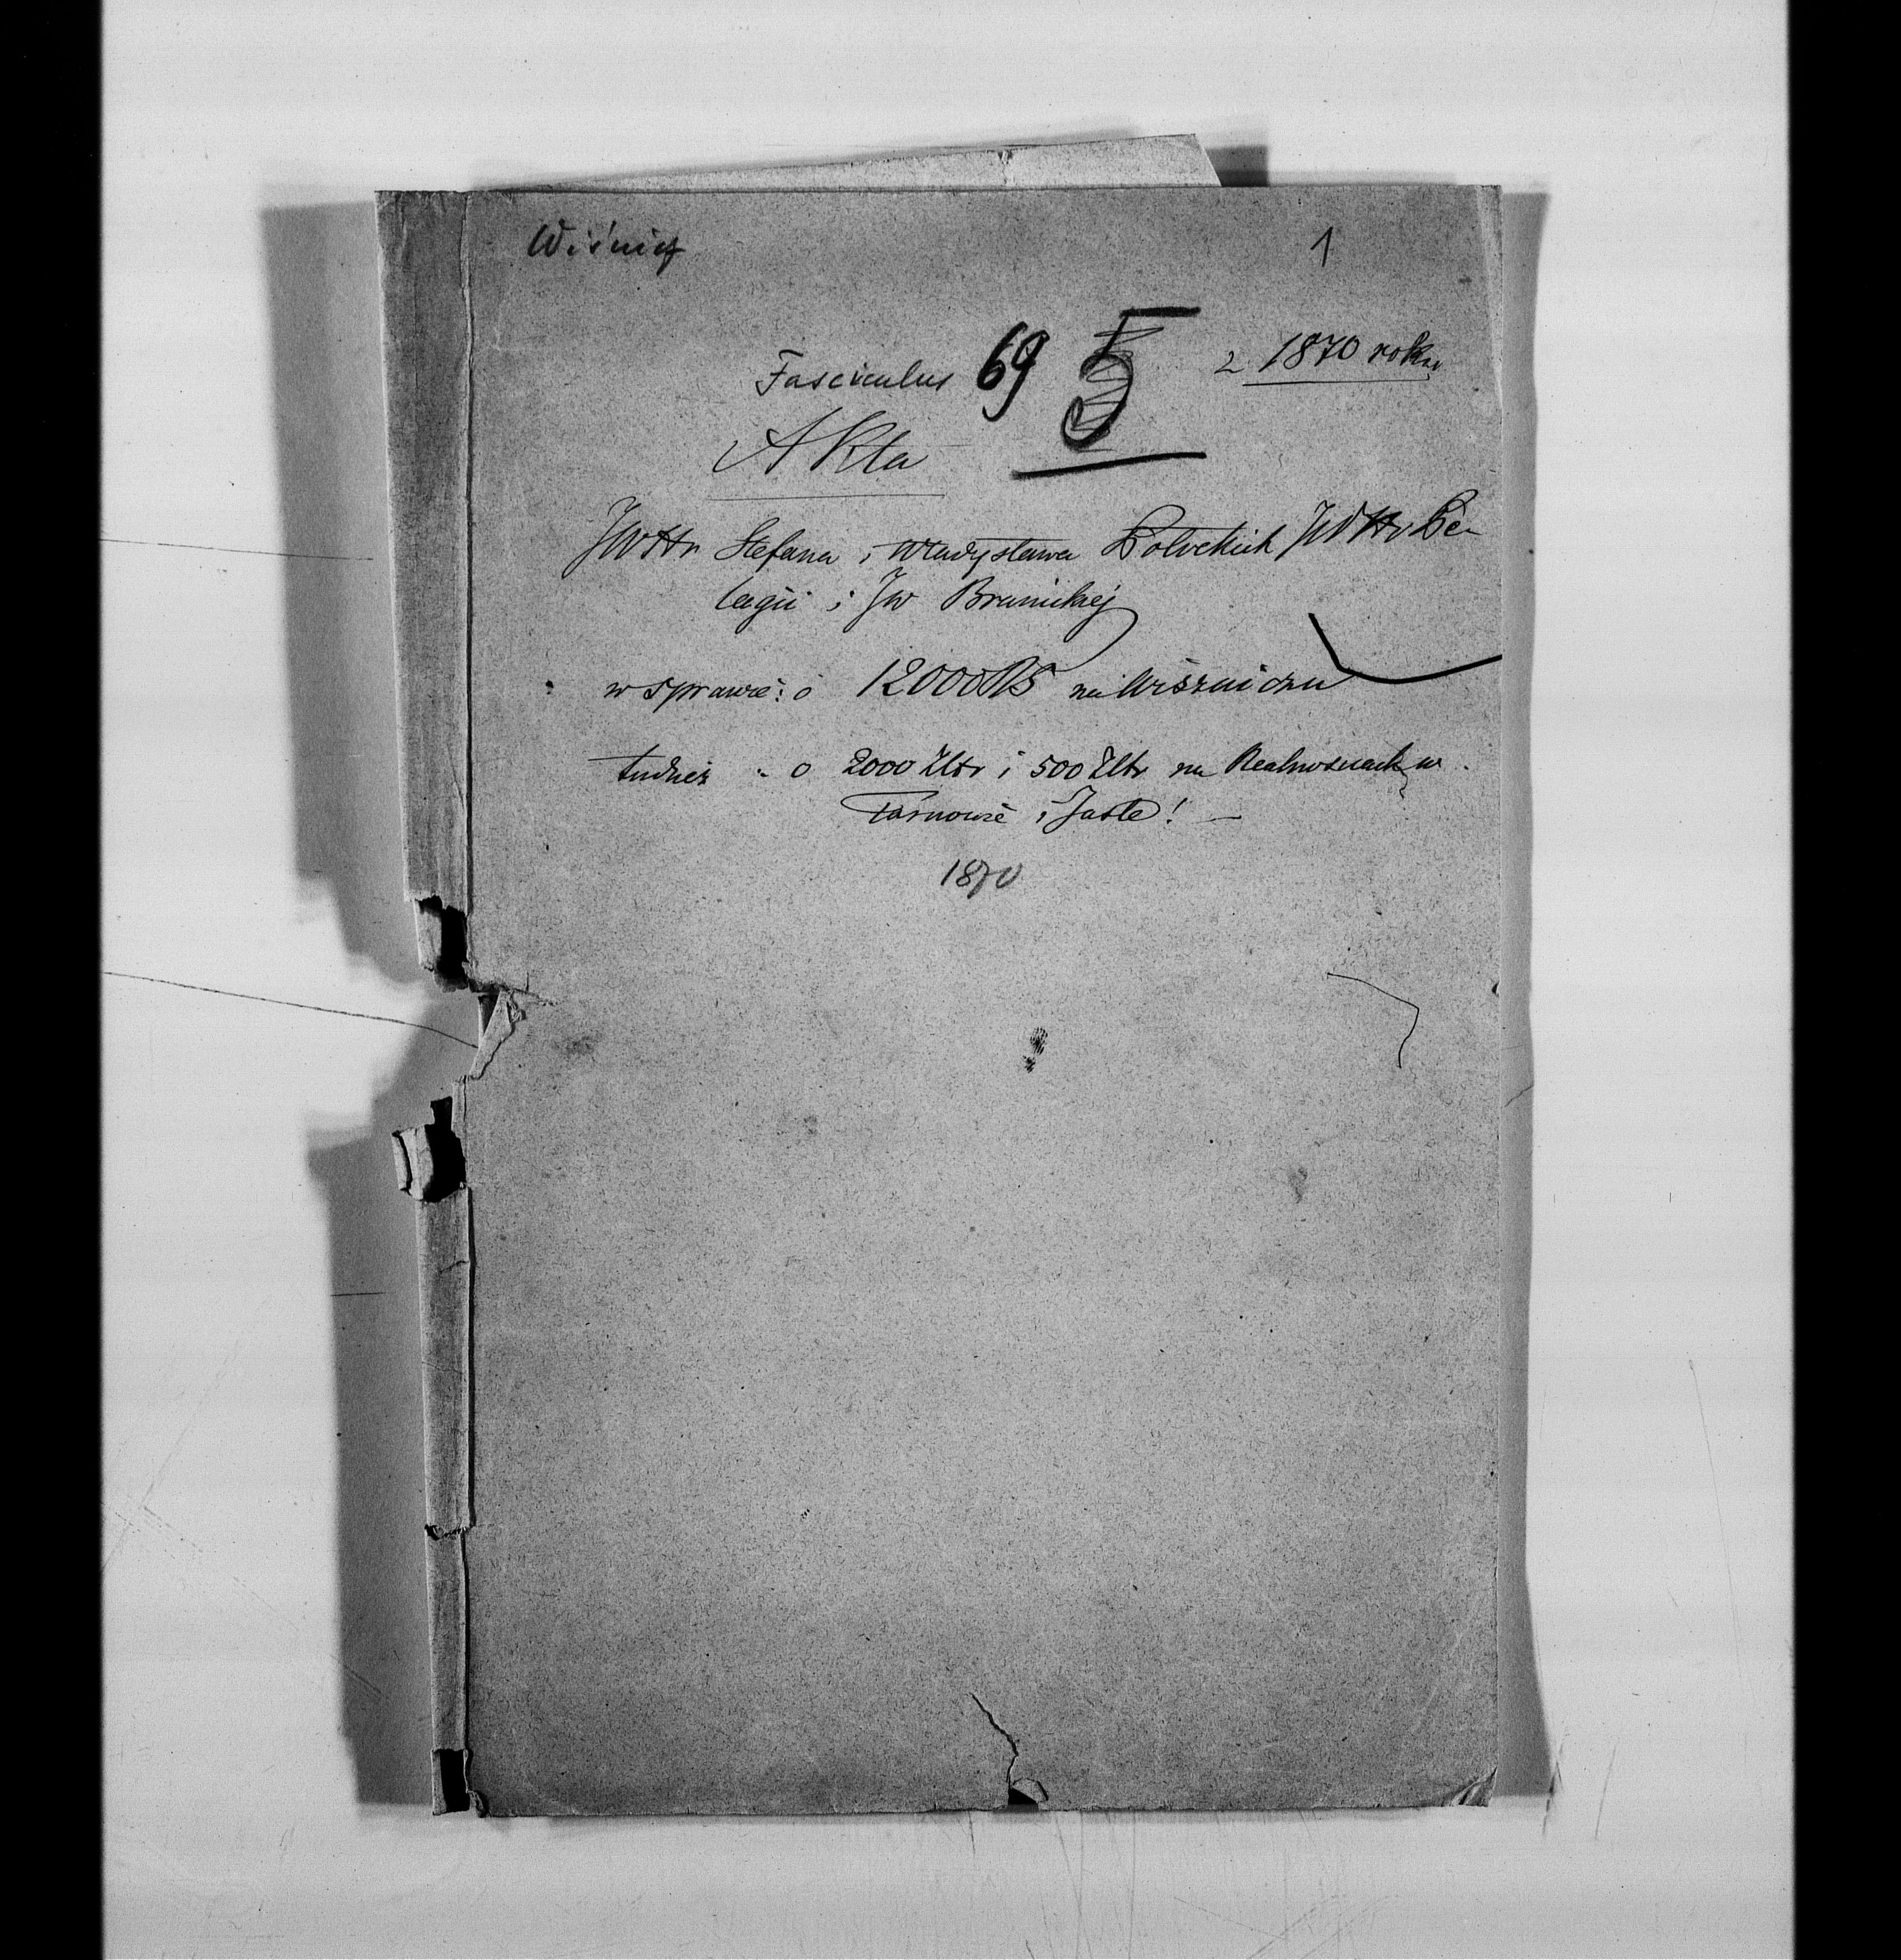 Wiśnicz
1
Fasciculus 69 z 1870 roku
Akta
JWHr Stefana i Władysława Potockich JWHr Pe-
lagii i JW Brunickiej
w sprawie: o 12000 na Wiśzniczu
tudzież " o 2000 Złtr i 500 Złtr na Realnosciach w
Tarnowie i Jaśle! —
1870